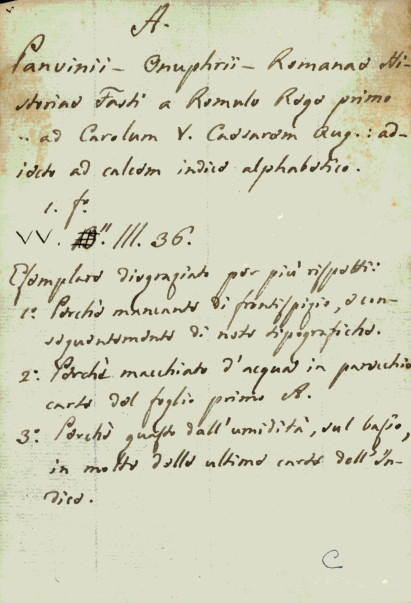 A.
Panvinii – Onuphrii – Romanae Hi-
storiae Fasti a Romulo Rege primo
ad Carolum V. Caesarem Aug.: ad-
iecto ad calcem indice alphabetico.
1. fo.
VV. III. 36.
Esemplare disgraziato per più rispetti:
1.o Perchè mancante di frontispizio, e con-
seguentemente di note tipografiche.
2.o Perchè macchiato d'acqua in parecchie
carte del foglio primo A.
3.o Perchè guasto dall'umidità, sul basso,
in molte delle ultime carte dell'In-
dice.
C